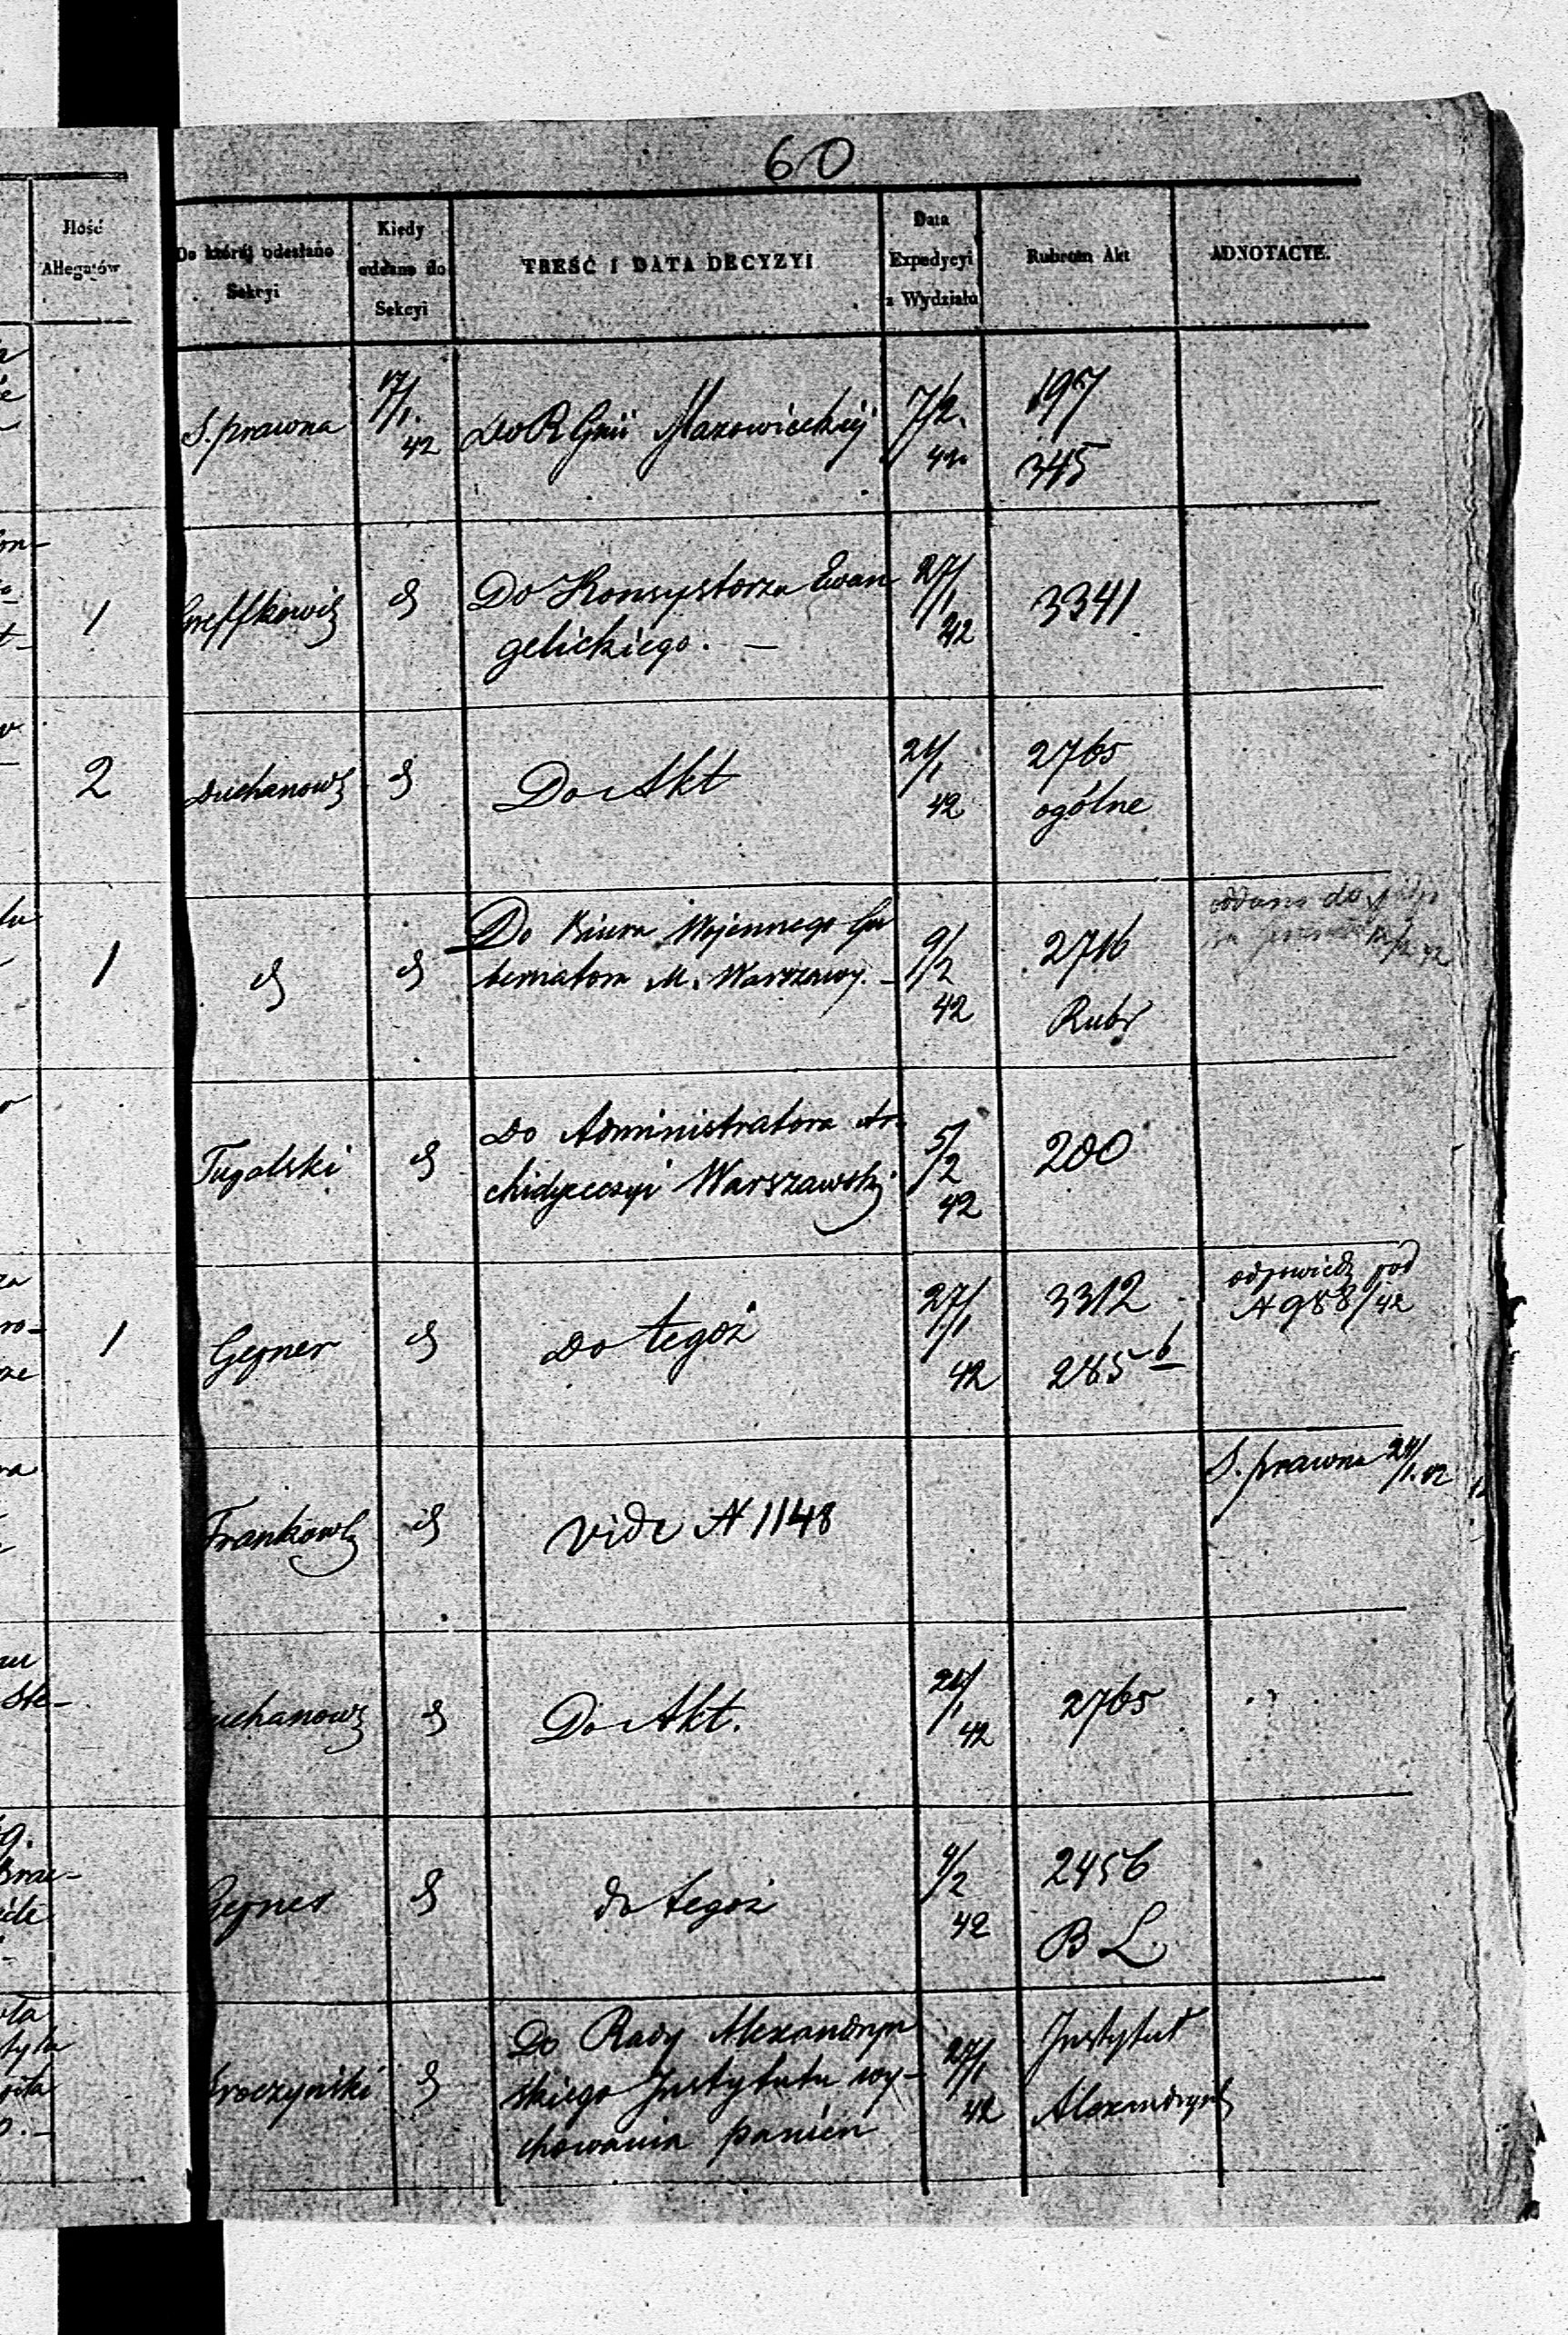 60
Ilość
Allegatów
Do której odesłano
Sekcyi
Kiedy
oddano do
Sekcyi
TREŚĆ I DATA DECYZYI
Data
Expedycyi
z Wydziału
Rubrum Akt
ADNOTACYE.
S. prawna
17/1.
42
Do R Gnii Mazowieckiéj
7/2.
42
197
345
1
Greffkowicz
d
Do Konsystorza Ewan
gelickiego. —
27/1
42
3341
2
Duchanow
d
Do Akt
24/1
42
2765
ogólne
1
d
d
Do Biura Wojennego Gu
bernatora M. Warszawy. –
9/2
42
2716
Rubr
oddano do
Tugalski
d
Do Administratora Ar-
chidyecezyi Warszawski
5/2
42
200
1
Gejner
d
do tegoż
27/1
42
3312
285 b
odpowiedz pod
N 988/42
Frankow
d
vide N 1148
S. prawna 24/1 42
Duchanow
d
Do Akt.
24/1
42
2765
Gejner
d
do tegoż
9/2
42
2456
B L.
d
Do Rady Alexandryn
skiego Instytutu wy-
chowania panien
27/1
42
Instytut
Alexandryń